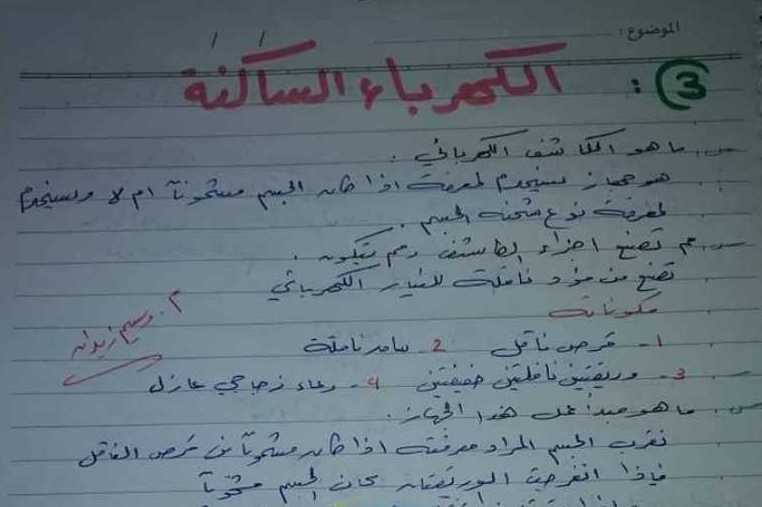 الموضوع:
3: الكهرباء الساكنة
س. ما هو الكاشف الكهربائي.
هو جهاز يستخدم لمعرفة اذا كان الجسم مشحوناً ام لا ويستخدم
لمعرفة نوع شحنة الجسم.
س. مم تصنع اجزاء الكاشف ومم يتكون.
تصنع من مواد ناقلة للتيار الكهربائي
مكوناته
م. وسيم زيدان
1- قرص ناقل 2- ساق ناقلة
3- وريقتين ناقلتين خفيفتين 4- وعاء زجاجي عازل
س. ما هو مبدأ عمل هذا الجهاز.
نقرب الجسم المراد معرفته اذا كان مشحوناً من قرص الناقل
فإذا انفرجت الوريقتان كان الجسم مشحوناً